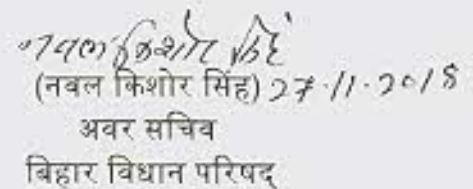 नवल किशोर सिंह
(नवल किशोर सिंह) 27.11.2018
अवर सचिव
बिहार विधान परिषद्